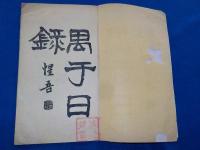 禺于日
錄
惺吾